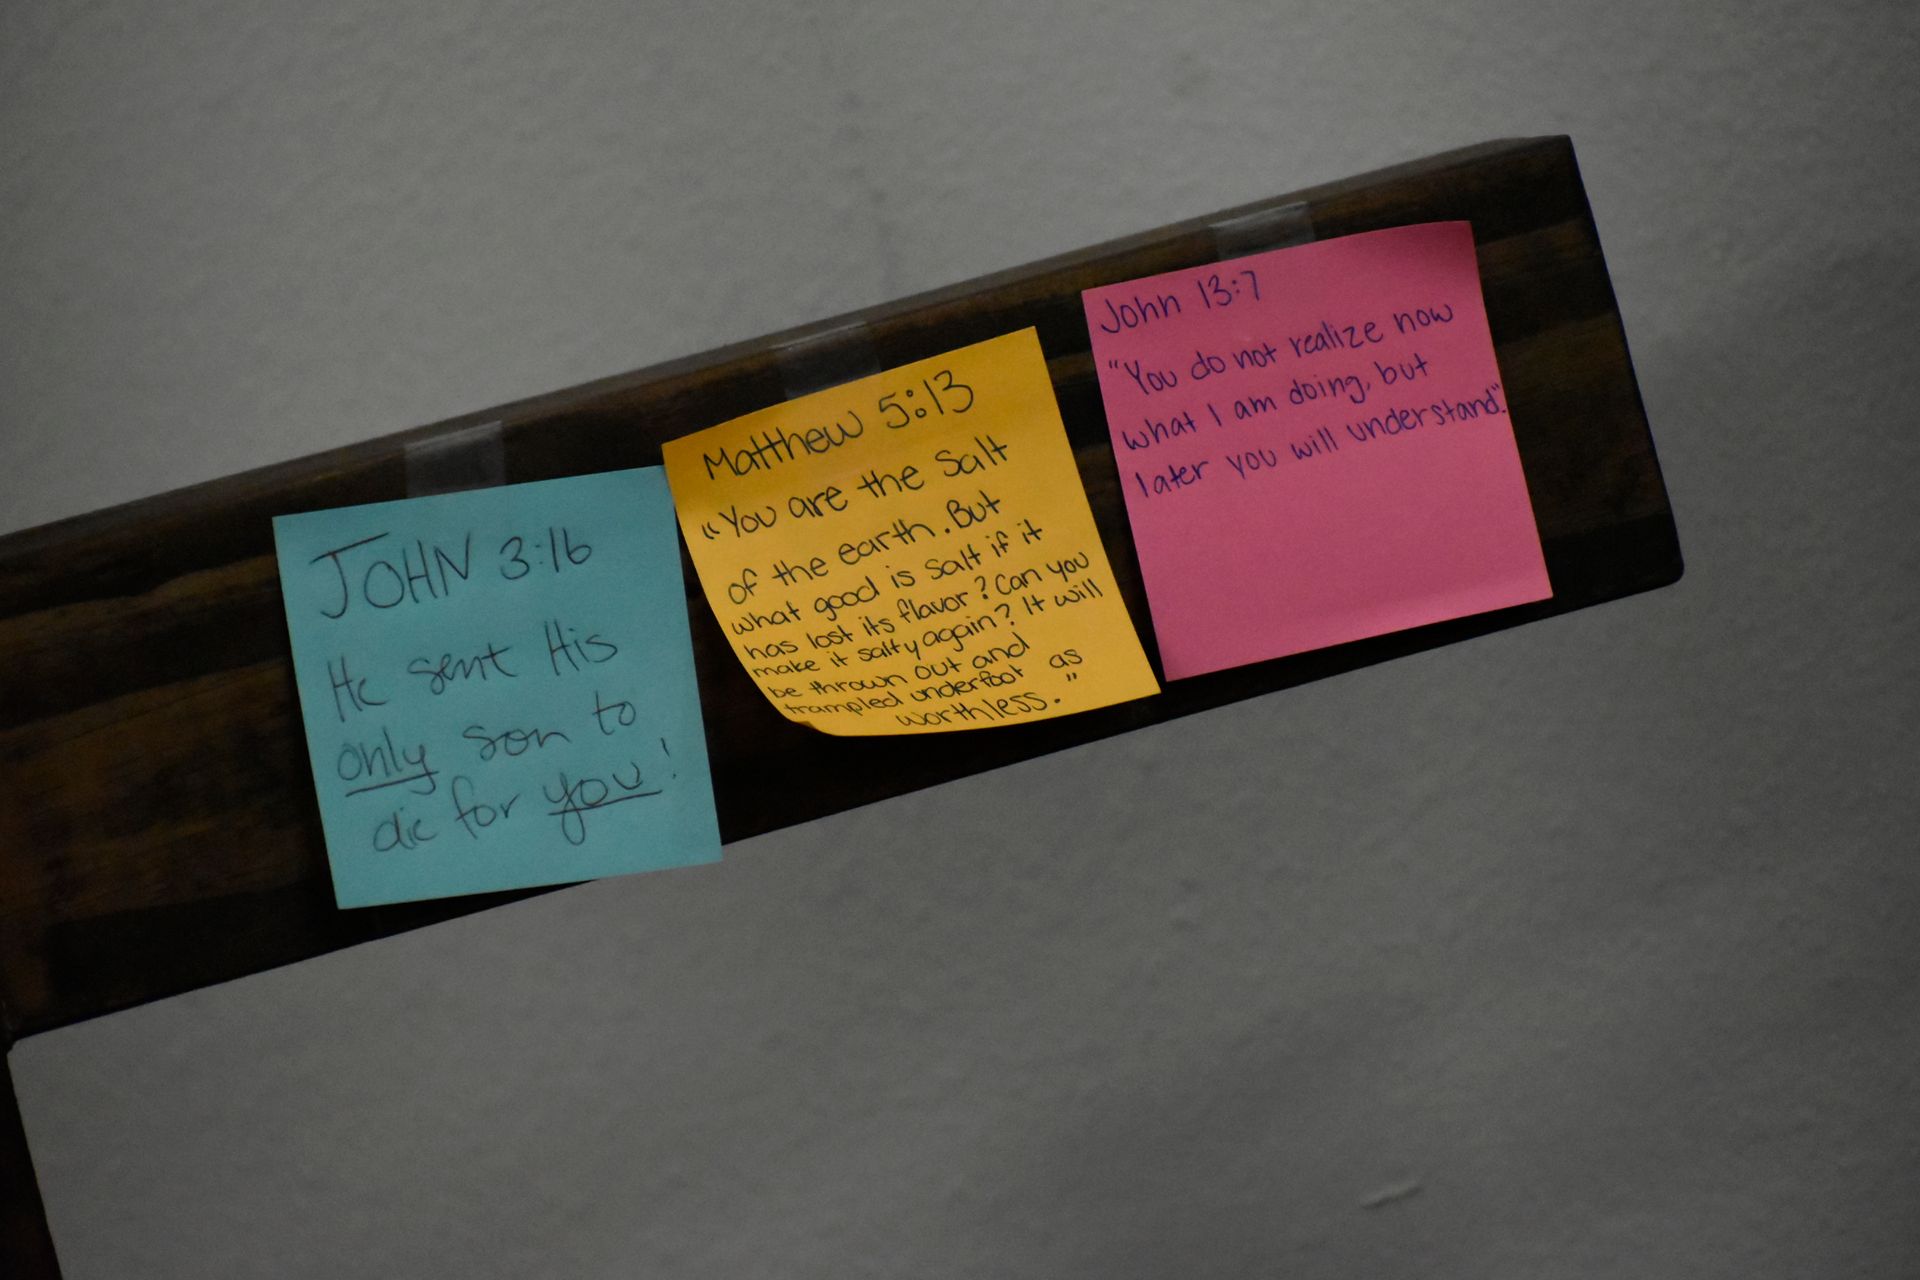 JOHN 3:16
He sent His
only son to
die for you!
Matthew 5:13
"You are the Salt
of the earth. But
what good is salt if it
has lost its flavor? Can you
make it salty again? It will
be thrown out and
trampled underfoot as
worthless."
John 13:7
"You do not realize now
what I am doing, but
later you will understand."